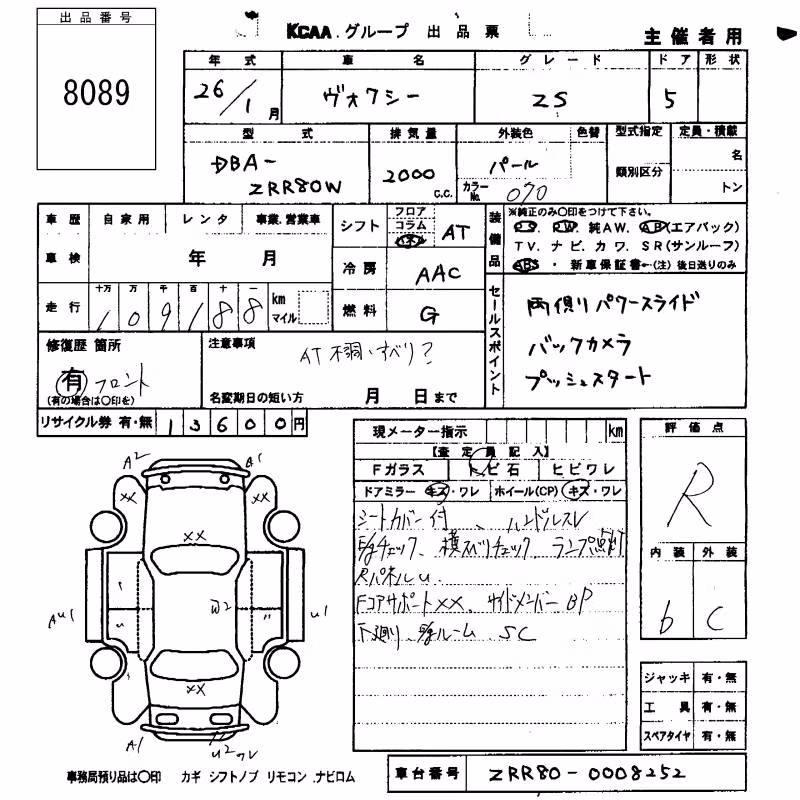 出品番号
8089
KCAA グループ 出品票
主催者用
年式 車名 グレード ドア 形状
26/1月 ヴォクシー ZS 5
型式 排気量 外装色 色替 型式指定 定員・積載
DBA-
ZRR80W
2000 c.c.
パール
カラーNo. 070
類別区分
名
トン
車歴 自家用 レンタ 事業.営業車
車検 年 月
走行 十万 万 千 百 十 一
109188 km マイル
シフト フロア コラム AT
冷房 AAC
燃料 G
装備品
※純正のみ〇印をつけて下さい。
P.S. P.W. 純AW. AB(エアバック)
TV. ナビ. カワ. SR(サンルーフ)
ABS ・ 新車保証書←(注) 後日送りのみ
セールスポイント
両側りパワースライド
バックカメラ
プッシュスタート
修復歴 箇所
有 フロント
(有の場合は〇印を)
注意事項
AT不調・すべり?
名変期日の短い方 月 日まで
リサイクル券 有・無 13600円
現メーター指示 km
【査定員記入】
Fガラス トビ石 ヒビワレ
ドアミラー キズ・ワレ ホイール(CP) キズ・ワレ
シートカバー付、ハンドルスレ
E/gチェック、横スベリチェック、ランプ点灯
Rパネルu
Fコアサポートxx、サイドメンバーBP
下廻り E/gルーム SC
評価点
R
内装 外装
b C
ジャッキ 有・無
工具 有・無
スペアタイヤ 有・無
A2 A1
xx xx
xx
W2
Au1 u1
xx
A1 u2ワレ
事務局預り品は〇印 カギ シフトノブ リモコン ナビロム
車台番号 ZRR80-0008252